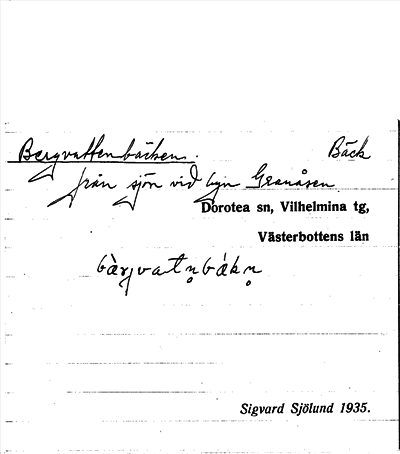 Bergvattenbäcken. Bäck
från sjön vid byn Granåsen
Dorotea sn, Vilhelmina tg,
Västerbottens län
bàrjvatn̥bák̀n̥
Sigvard Sjölund 1935.